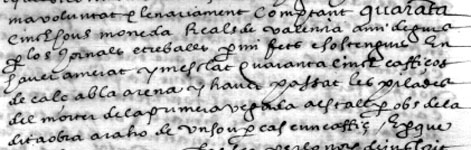 ma voluntat plenariament Comptant quaranta
Cinch sous moneda Reals de Valencia a mi deguts
per los jornals e treballs per mi fets e sostenguts En
haver amerat y mesclat quaranta cinch cafficos
de cals ab la arena y haver passat les pilades
del morter de la primera vegada a estall per obs de la
dita obra a raho de un sou per cascun caffis / E perque